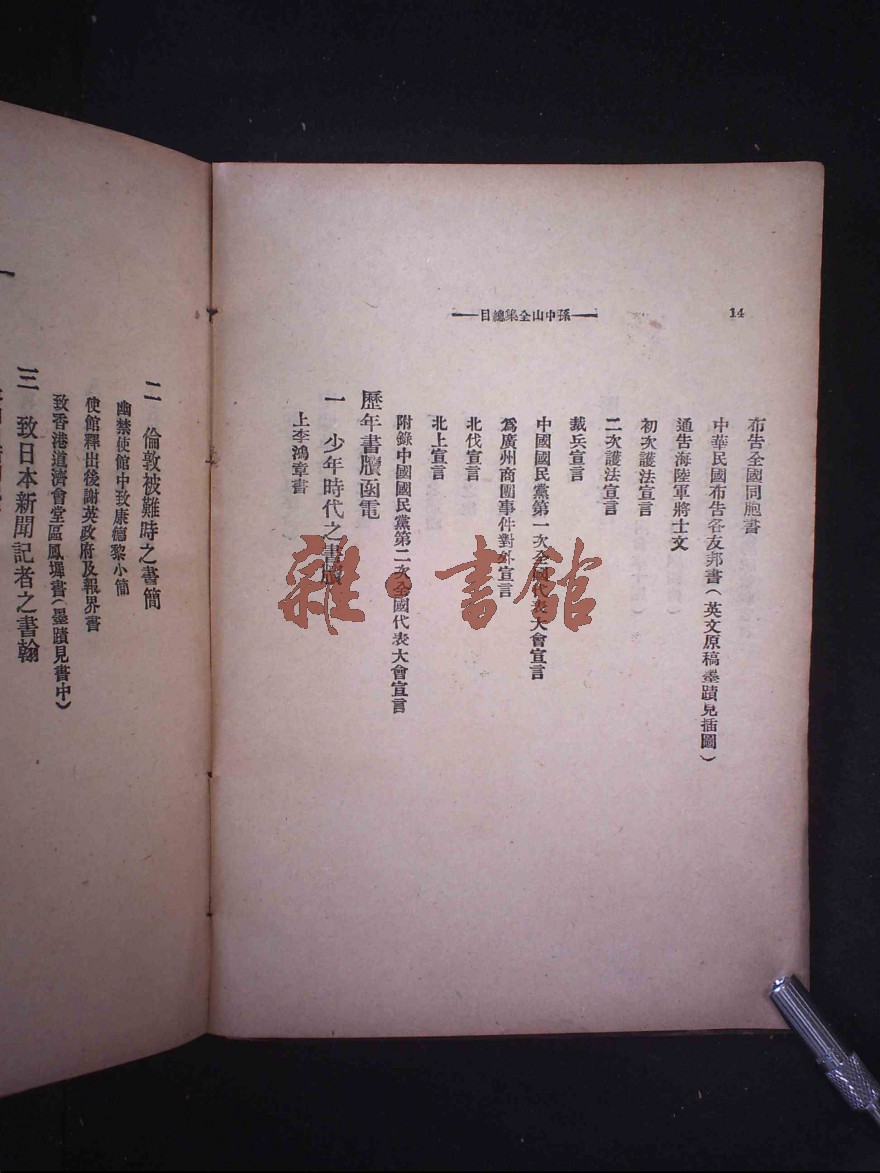 14
孫中山全集總目
布告全國同胞書
中華民國布告各友邦書(英文原稿墨蹟見插圖)
通告海陸軍將士文
初次護法宣言
二次護法宣言
裁兵宣言
中國國民黨第一次全國代表大會宣言
爲廣州商團事件對外宣言
北伐宣言
北上宣言
附錄中國國民黨第二次全國代表大會宣言
歷年書牘函電
一 少年時代之書牘
上李鴻章書
二 倫敦被難時之書簡
幽禁使館中致康德黎小簡
使館釋出後謝英政府及報界書
致香港道濟會堂區鳳墀書(墨蹟見書中)
三 致日本新聞記者之書翰
雜·書館